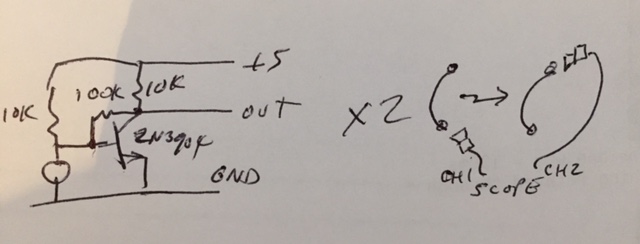 +5
10K
100K
10K
OUT
2N3904
GND
X2
CH1
SCOPE
CH2